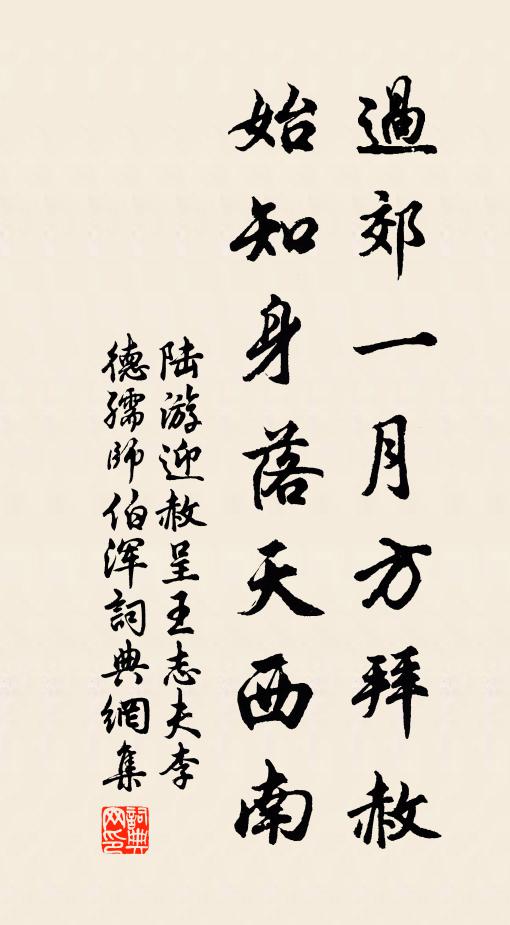 過郊一月方拜赦
始知身落天西南
陆游迎赦呈王志夫李
德孺師伯浑詞典網集
詞典
网印